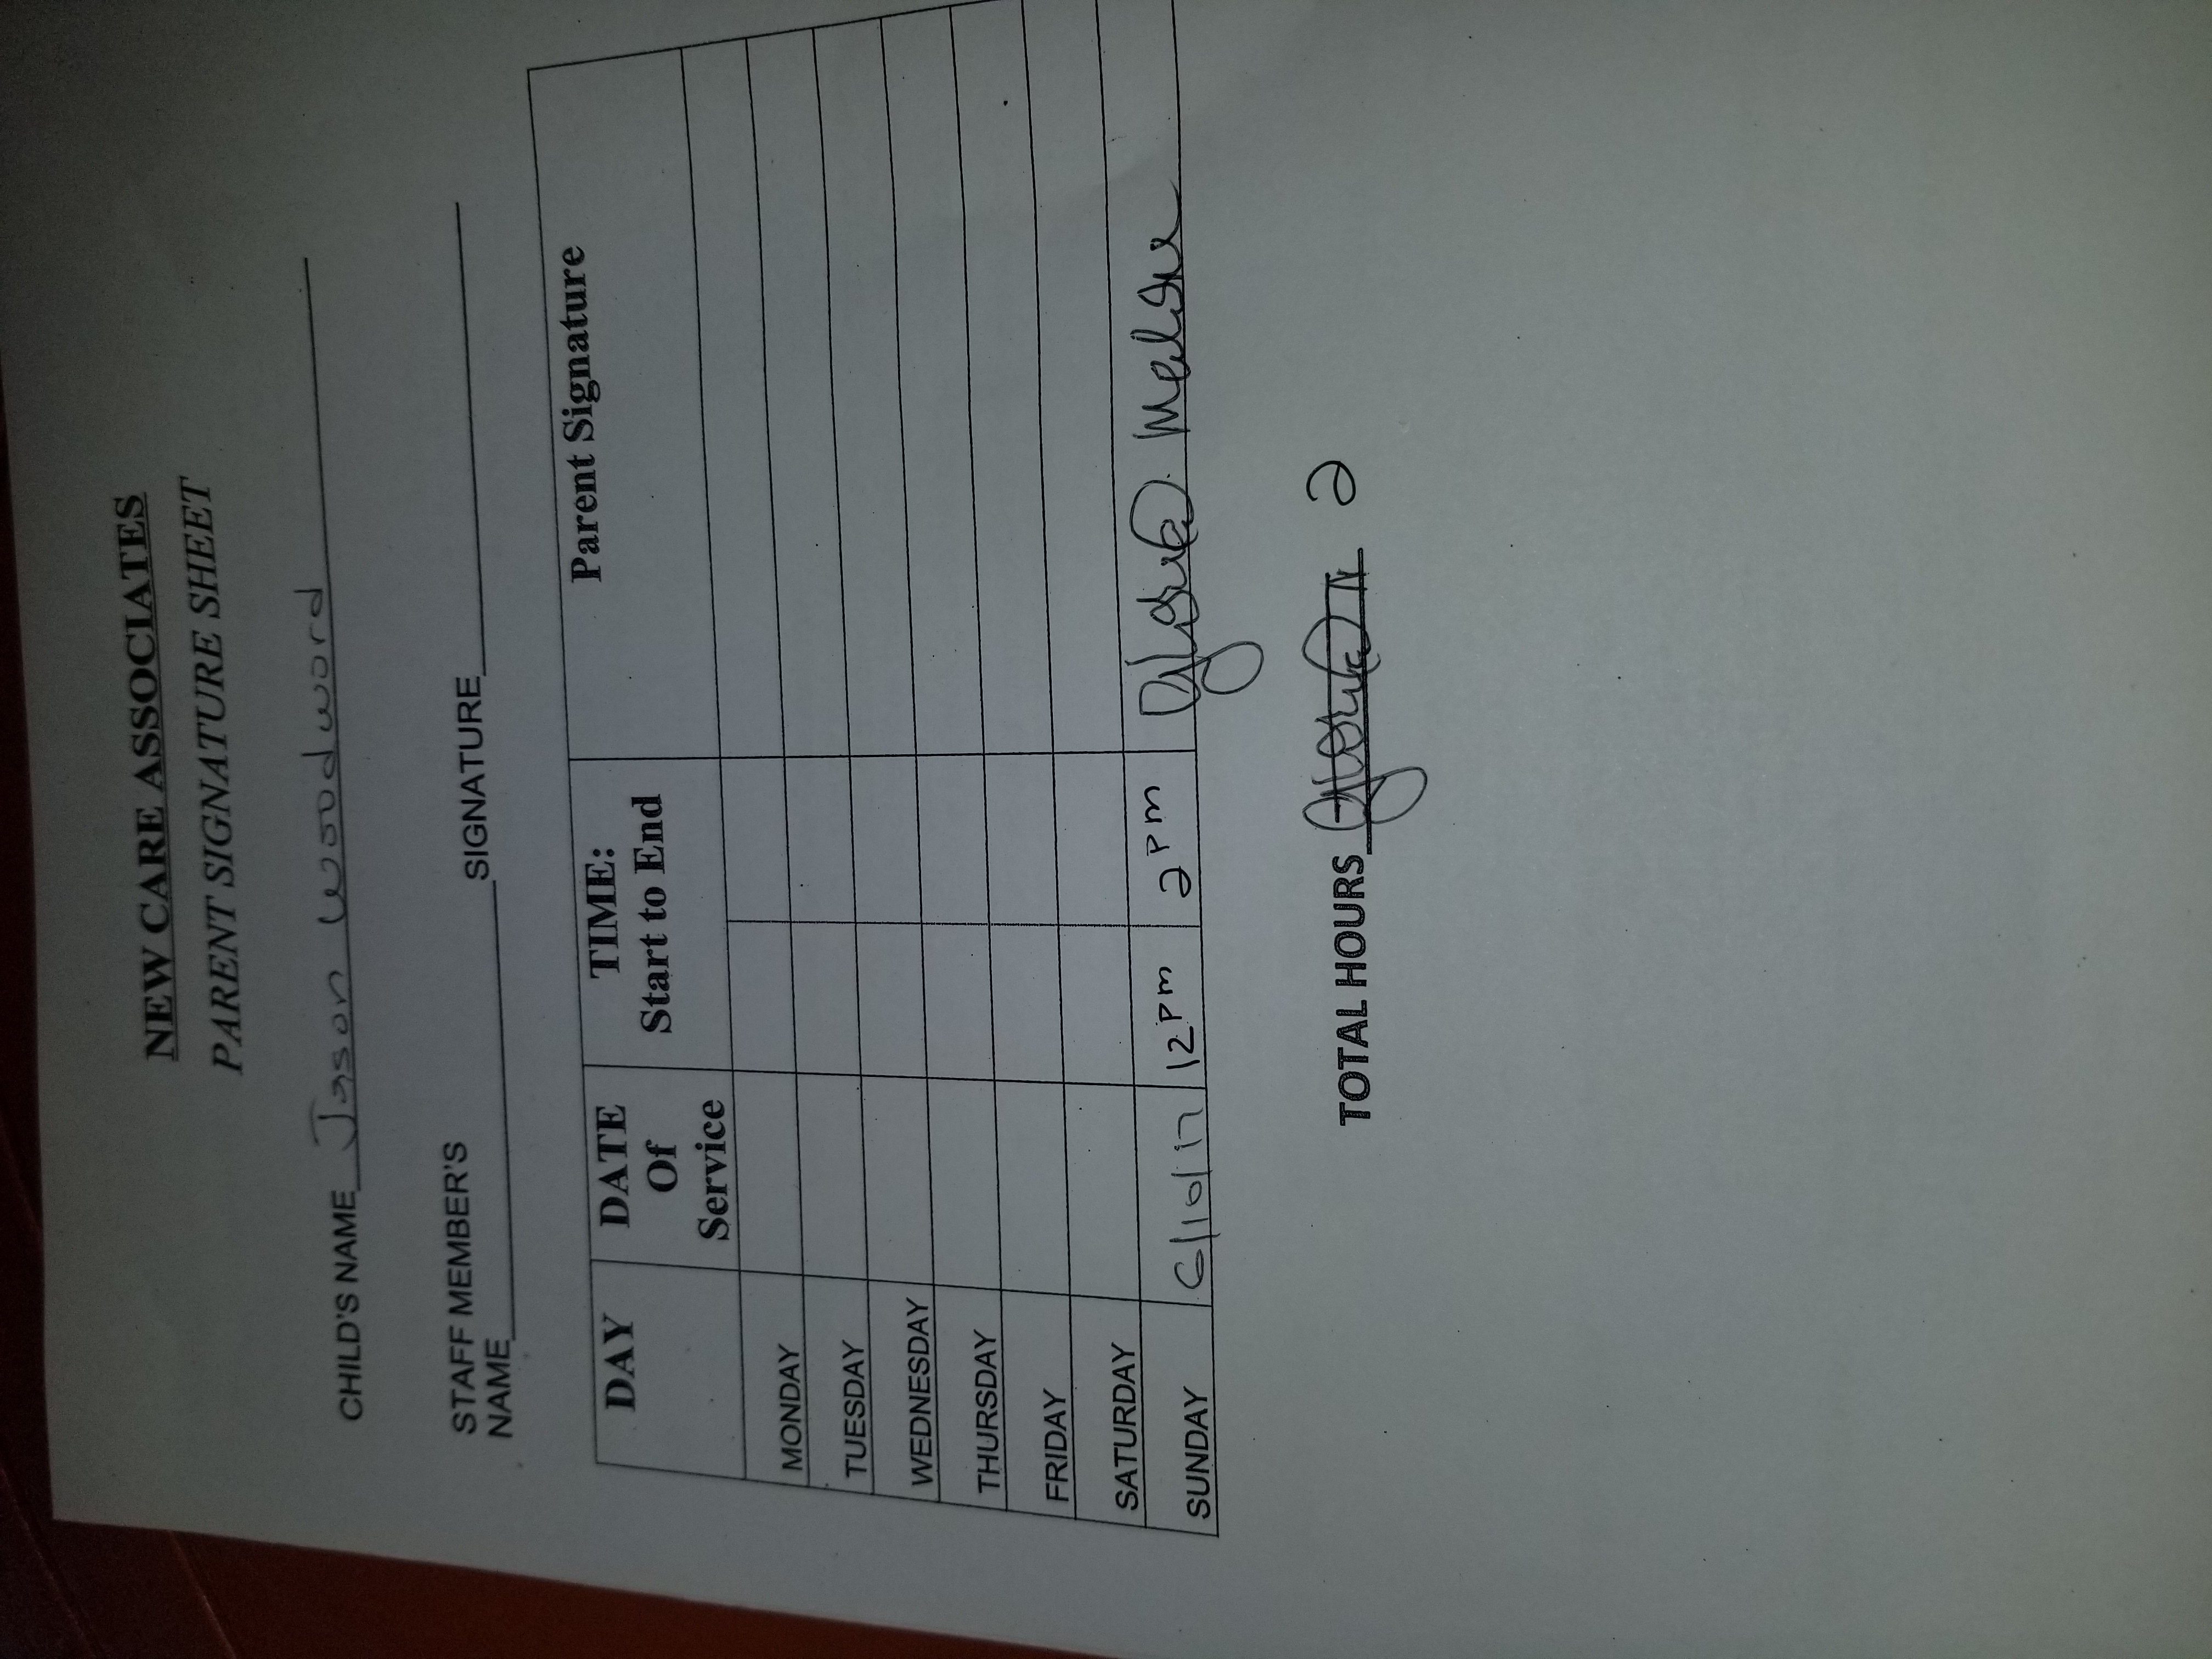 NEW CARE ASSOCIATES
PARENT SIGNATURE SHEET
CHILD'S NAME Jason Woodword
STAFF MEMBER'S
NAME SIGNATURE
DAY DATE Of Service TIME: Start to End Parent Signature
MONDAY
TUESDAY
WEDNESDAY
THURSDAY
FRIDAY
SATURDAY
SUNDAY 6/10/17 12 pm 2 pm Gloria
TOTAL HOURS 2